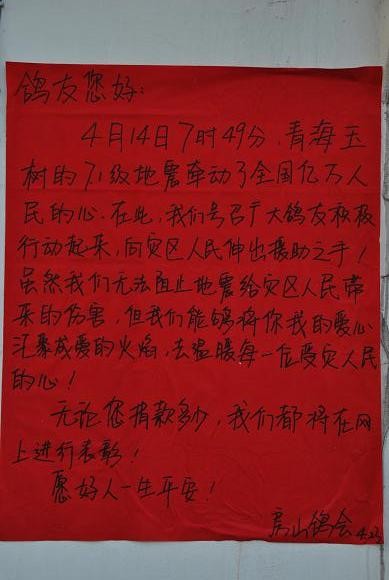 鸽友您好：
4月14日7时49分，青海玉
树的7.1级地震牵动了全国亿万人
民的心。在此，我们号召广大鸽友积极
行动起来，向灾区人民伸出援助之手！
虽然我们无法阻止地震给灾区人民带
来的伤害，但我们能够将你我的爱心
汇聚成爱的火焰，去温暖每一位受灾人民
的心！
无论您捐款多少，我们都将在网
上进行表彰！
愿好人一生平安！
房山鸽会 4.23